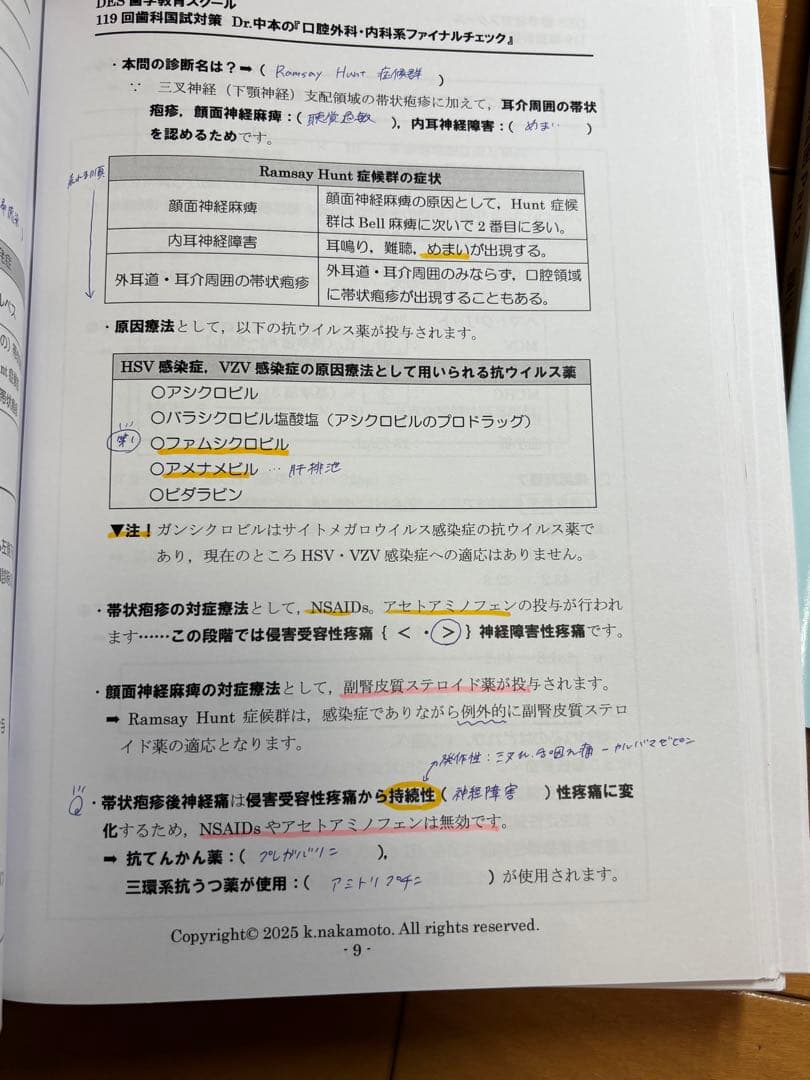 DES 歯学教育スクール
119 回歯科国試対策 Dr.中本の『口腔外科・内科系ファイナルチェック』
・本問の診断名は？➡( Ramsay Hunt 症候群 )
∵ 三叉神経（下顎神経）支配領域の帯状疱疹に加えて，耳介周囲の帯状
疱疹，顔面神経麻痺：( 聴覚過敏 )，内耳神経障害：( めまい )
を認めるためです。
Ramsay Hunt 症候群の症状
顔面神経麻痺
顔面神経麻痺の原因として，Hunt 症候
群は Bell 麻痺に次いで 2 番目に多い。
内耳神経障害
耳鳴り，難聴，めまいが出現する。
外耳道・耳介周囲の帯状疱疹
外耳道・耳介周囲のみならず，口腔領域
に帯状疱疹が出現することもある。
・原因療法として，以下の抗ウイルス薬が投与されます。
HSV 感染症，VZV 感染症の原因療法として用いられる抗ウイルス薬
○アシクロビル
○バラシクロビル塩酸塩（アシクロビルのプロドラッグ）
第1 ○ファムシクロビル
○アメナメビル … 肝排泄
○ビダラビン
▼注！ガンシクロビルはサイトメガロウイルス感染症の抗ウイルス薬で
あり，現在のところ HSV・VZV 感染症への適応はありません。
・帯状疱疹の対症療法として，NSAIDs。アセトアミノフェンの投与が行われ
ます……この段階では侵害受容性疼痛 { ＜ ・ ＞ } 神経障害性疼痛です。
・顔面神経麻痺の対症療法として，副腎皮質ステロイド薬が投与されます。
➡ Ramsay Hunt 症候群は，感染症でありながら例外的に副腎皮質ステロ
イド薬の適応となります。
発作性：三叉N，舌咽N痛 − カルバマゼピン
Q ・帯状疱疹後神経痛は侵害受容性疼痛から持続性( 神経障害 )性疼痛に変
化するため，NSAIDs やアセトアミノフェンは無効です。
➡ 抗てんかん薬：( プレガバリン )，
三環系抗うつ薬が使用：( アミトリプチン )が使用されます。
Copyright© 2025 k.nakamoto. All rights reserved.
- 9 -